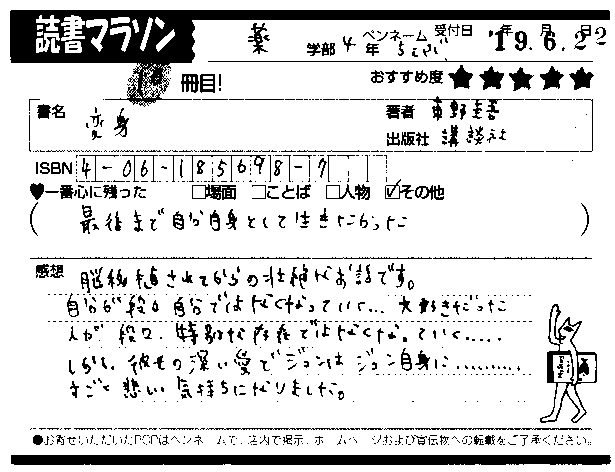 読書マラソン
薬 学部 4 年 ペンネーム 受付日 '19年6.月22日
冊目!
おすすめ度 ★★★★★
書名 変身
著者 東野圭吾
出版社 講談社
ISBN 4-06-185698-7
♥一番心に残った □場面 □ことば □人物 ☑その他
(最後まで自分自身として生きたかった)
感想 脳移植されてからの壮絶なお話です。
自分が段々自分ではなくなっていく… 大好きだった
人が、段々、特別な存在ではなくなっていく……
しかし、彼女の深い愛でジュンはジュン自身に………
すごく悲しい気持ちになりました。
●お寄せいただいたPOPはペンネームで、店内で掲示、ホームページおよび宣伝物への転載をご了承ください。